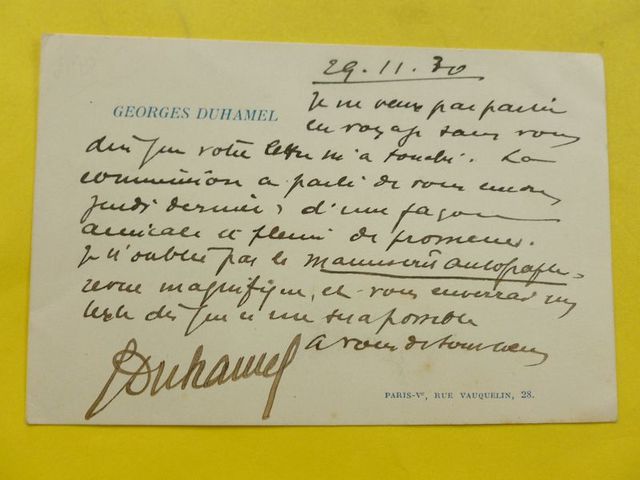 29.11.30
GEORGES DUHAMEL
Je ne veux pas partir
en voyage sans vous
dire que votre lettre m'a touché. La
commission a parlé de vous encore
jeudi dernier, d'une façon
amicale et pleine de promesses.
Je n'oublie pas le manuscrit autographe,
revue magnifique, et vous enverrai un
texte dès que ce me sera possible
A vous de tout cœur
GDuhamel
PARIS-Vᵉ, RUE VAUQUELIN, 28.